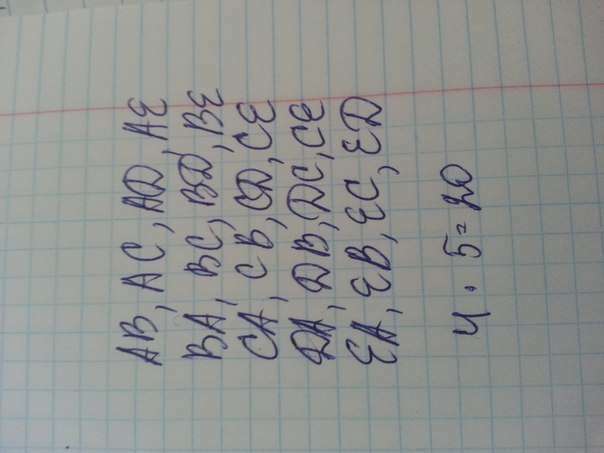 AB, AC, AD, AE
BA, BC, BD, BE
CA, CB, CD, CE
DA, DB, DC, CE
EA, EB, EC, ED
4 · 5 = 20